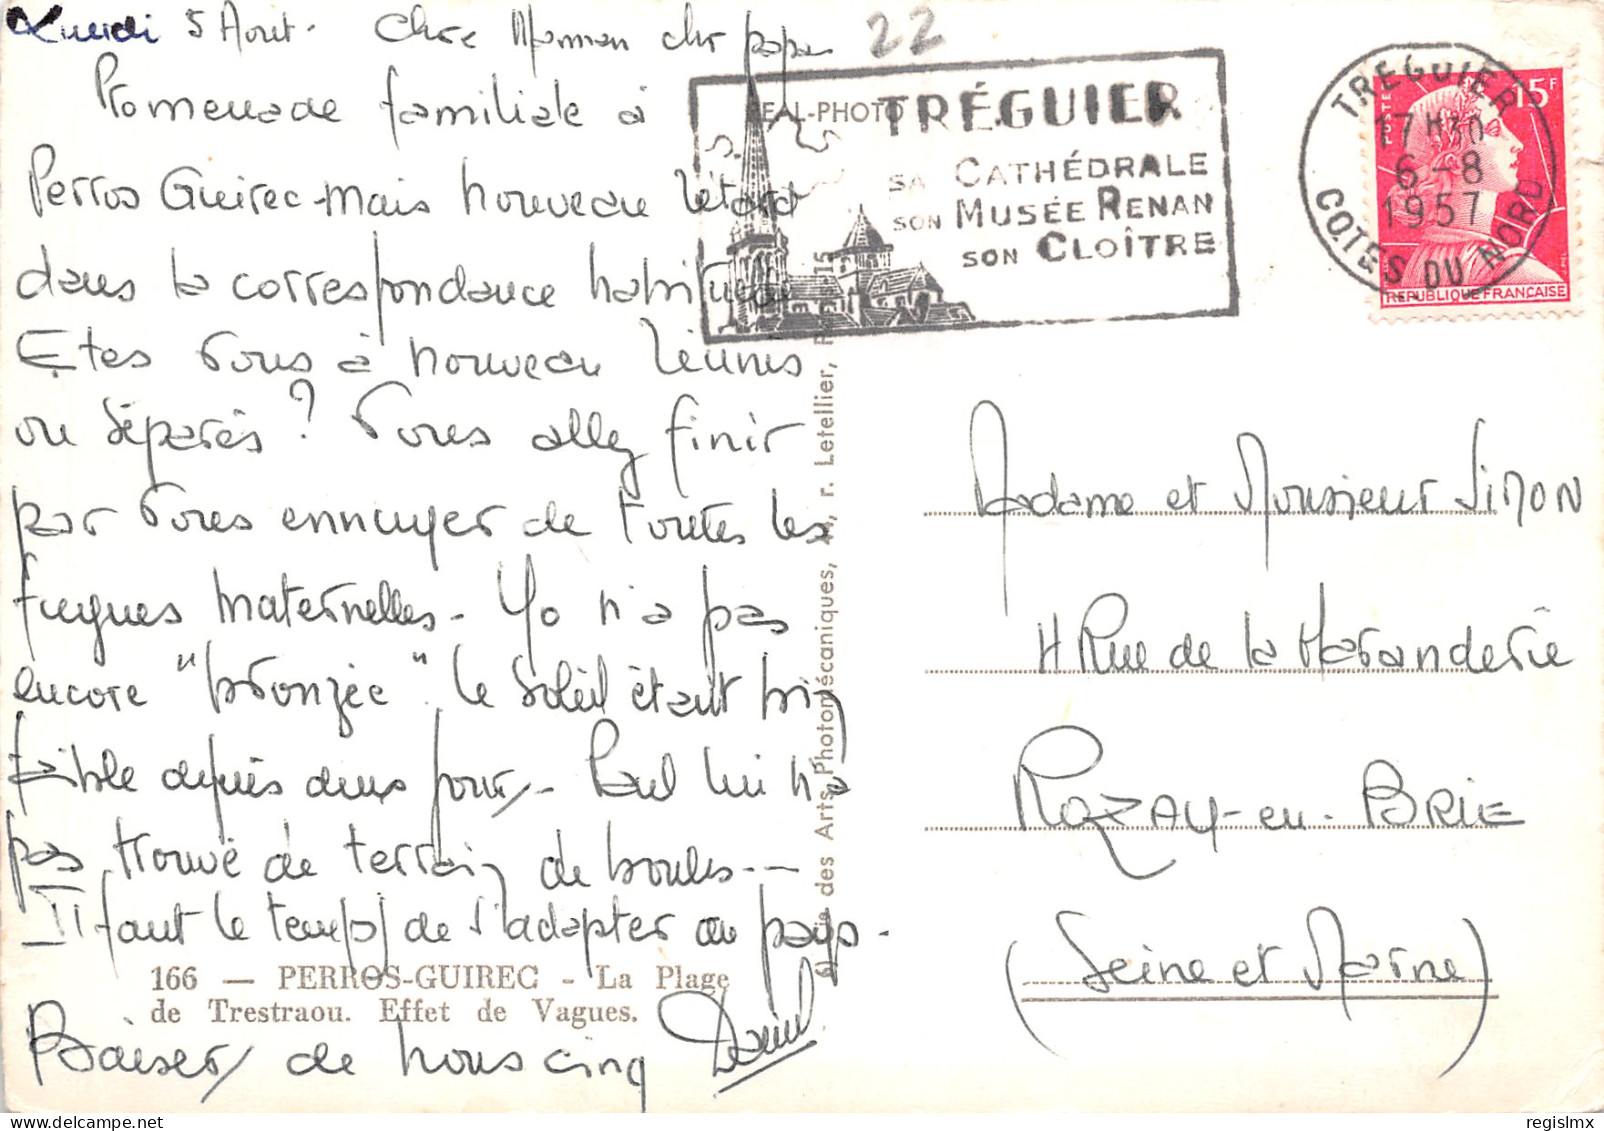 Lundi 5 Aout. Chère Maman cher papa
Promenade familiale à
Perros Guirec - mais nouveau retard
dans la correspondance habituelle
Etes vous à nouveau réunis
ou séparés ? Vous allez finir
par vous ennuyer de toutes les
fugues maternelles - Yo n'a pas
encore "bronzée" le soleil étant bien
faible depuis deux jours - Paul lui n'a
pas trouvé de terrain de boules --
Il faut le temps de s'adapter au pays -
Baisers de nous cinq
166 — PERROS-GUIREC - La Plage
de Trestraou. Effet de Vagues.
22
REAL-PHOTO
TRÉGUIER
SA CATHÉDRALE
SON MUSÉE RENAN
SON CLOÎTRE
TRÉGUIER
17H30
6-8
1957
COTES DU NORD
15F
POSTES
REPUBLIQUE FRANÇAISE
des Arts Photomécaniques, r. Letellier, 15
Madame et Monsieur SIMON
4 Rue de la Maranderie
ROZAY-en-BRIE
(Seine et Marne)
regislmx